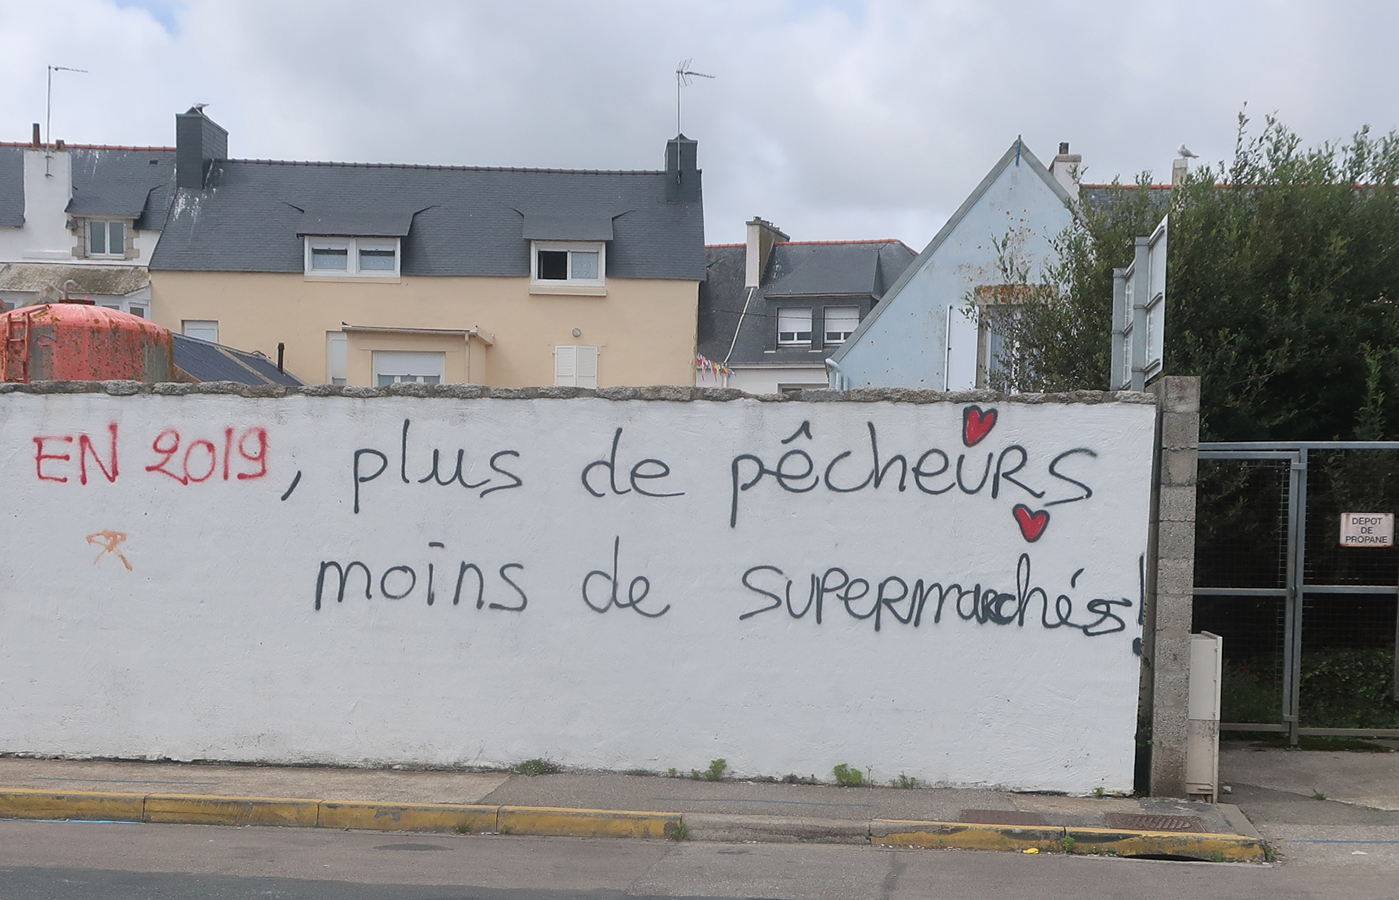 EN 2019, plus de pêcheurs
moins de supermarchés!
DEPOT
DE
PROPANE